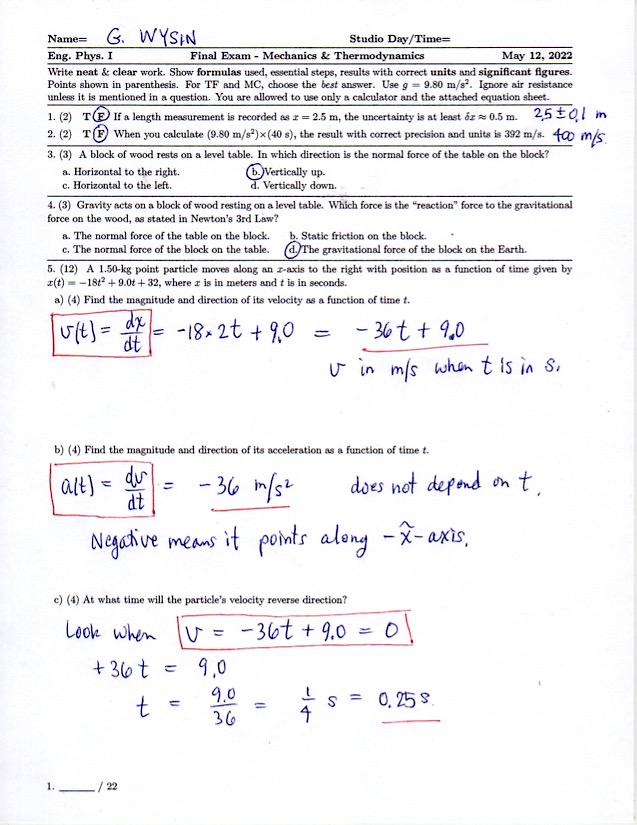 Name= G. WYSIN Studio Day/Time=
Eng. Phys. I Final Exam - Mechanics & Thermodynamics May 12, 2022
Write neat & clear work. Show formulas used, essential steps, results with correct units and significant figures.
Points shown in parenthesis. For TF and MC, choose the best answer. Use g = 9.80 m/s². Ignore air resistance
unless it is mentioned in a question. You are allowed to use only a calculator and the attached equation sheet.
1. (2) T F If a length measurement is recorded as x = 2.5 m, the uncertainty is at least δx ≈ 0.5 m. 2.5 ± 0.1 m
2. (2) T F When you calculate (9.80 m/s²)×(40 s), the result with correct precision and units is 392 m/s. 400 m/s
3. (3) A block of wood rests on a level table. In which direction is the normal force of the table on the block?
a. Horizontal to the right. b. Vertically up.
c. Horizontal to the left. d. Vertically down.
4. (3) Gravity acts on a block of wood resting on a level table. Which force is the “reaction” force to the gravitational
force on the wood, as stated in Newton's 3rd Law?
a. The normal force of the table on the block. b. Static friction on the block.
c. The normal force of the block on the table. d. The gravitational force of the block on the Earth.
5. (12) A 1.50-kg point particle moves along an x-axis to the right with position as a function of time given by
x(t) = −18t² + 9.0t + 32, where x is in meters and t is in seconds.
a) (4) Find the magnitude and direction of its velocity as a function of time t.
v(t) = dx/dt = -18×2t + 9.0 = -36t + 9.0
v in m/s when t is in s.
b) (4) Find the magnitude and direction of its acceleration as a function of time t.
a(t) = dv/dt = -36 m/s² does not depend on t.
Negative means it points along -x̂-axis.
c) (4) At what time will the particle's velocity reverse direction?
Look when v = -36t + 9.0 = 0
+36t = 9.0
t = 9.0/36 = 1/4 s = 0.25 s.
1. ______ / 22